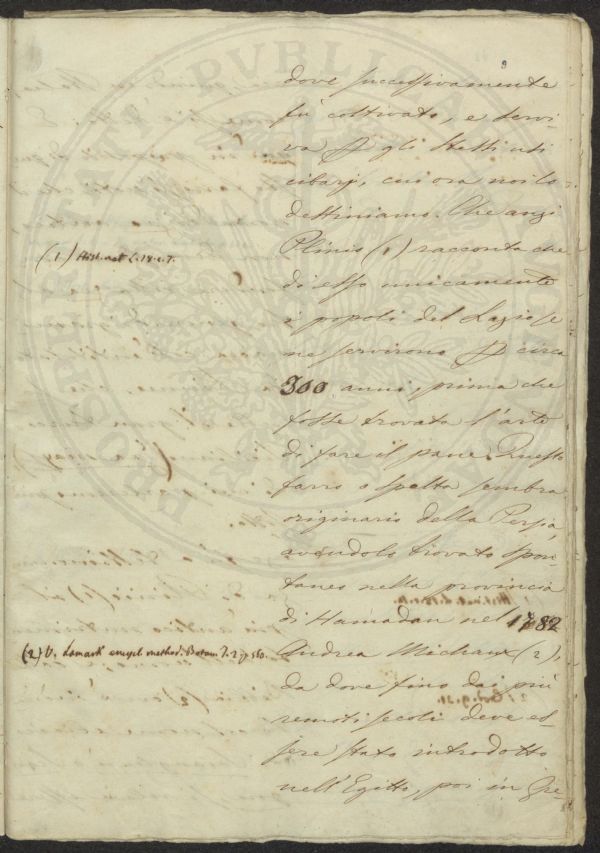 dove successivamente
fù coltivato, e servi-
va p gli stessi usi
cibarj, cui ora noi lo
destiniamo. Che anzi
Plinio (1) racconta che
(1.) Hist. nat. l. 18. c. 7.
di esso unicamente
i popoli del Lazio se
ne servirono p circa
300 anni, prima che
fosse trovata l'arte
di fare il pane. Questo
farro o spelta sembra
originario della Persia,
avendolo trovato spon-
taneo nella provincia
di Hamadan nel 1782
Andrea Michaux (2),
(2) V. Lamark encycl. method. Botan. T. 2. p. 560.
da dove fino dai più
remoti secoli deve es-
sere stato introdotto
nell'Egitto, poi in Gre-